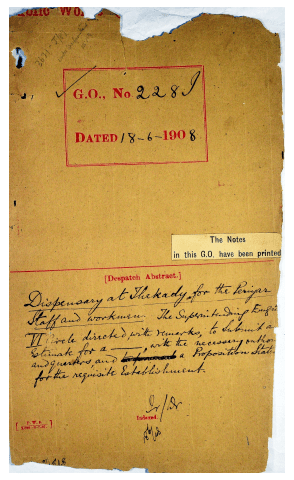 Public Works
G.O., No 228 I
DATED 18-6-1908
The Notes
in this G.O. have been printed
[Despatch Abstract.]
Dispensary at Thekady for the Periyar
Staff and workmen. The Superintending Engr
VI Circle directed with remarks, to submit a
estimate for a ____, with the necessary
and quarters, and a Proposition Stat
for the requisite Establishment.
Indexed.